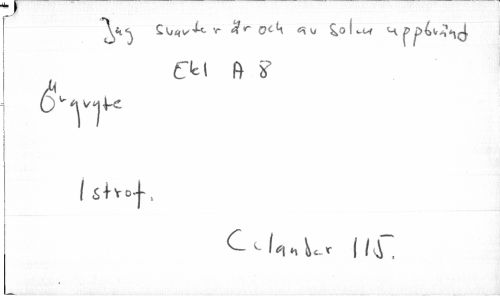 Jag svarter är och av solen uppbränd
Ekl A 8
Örgryte
1 strof.
Celander 115.